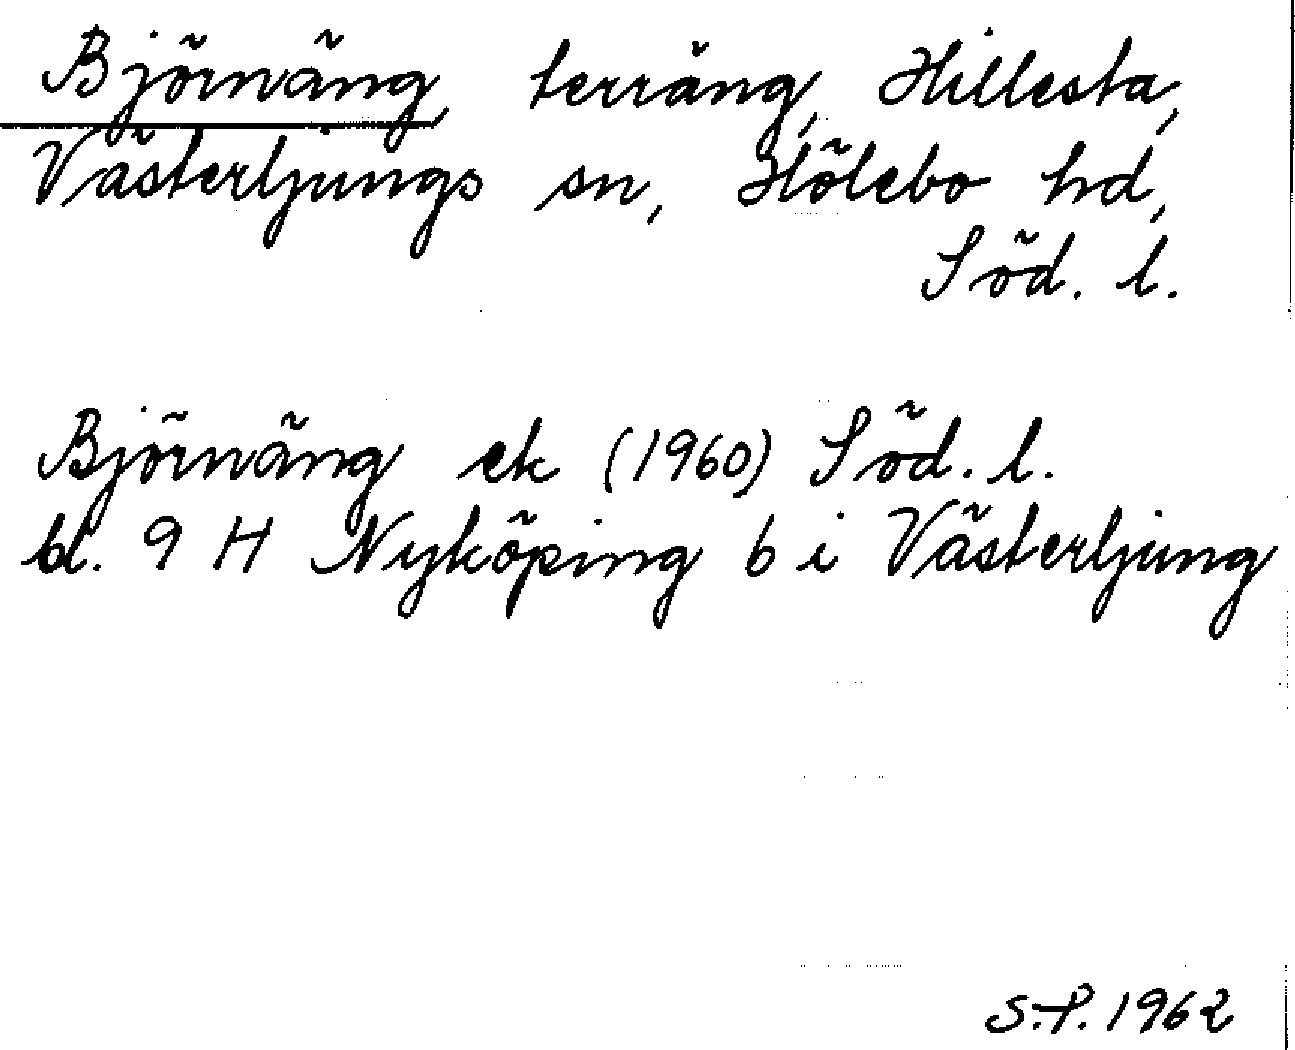 Björnäng, terräng, Hillesta,
Västerljungs sn, Hölebo hd,
Söd. l.
Björnäng ek (1960) Söd. l.
bl. 9 H Nyköping 6 i Västerljung
S.P. 1962